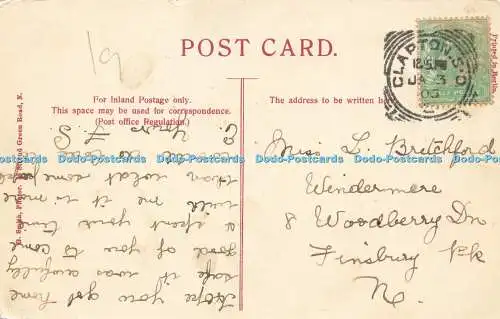 19
POST CARD.
For Inland Postage only.
This space may be used for correspondence.
(Post office Regulation.)
The address to be written here
CLAPTON. S.O
JA 3
Printed in Berlin.
Green Road, N.
Hope you got home
safe it was awfully
good of you to come
& spent your time
with me it is more
than what some people
would do
Yours
Miss L. Britchford
Windermere
8 Woodberry Dn
Finsbury Pk
N.
Dodo-Postcards Dodo-Postcards Dodo-Postcards Dodo-Postcards Dodo-Postcards Dodo-Postcards